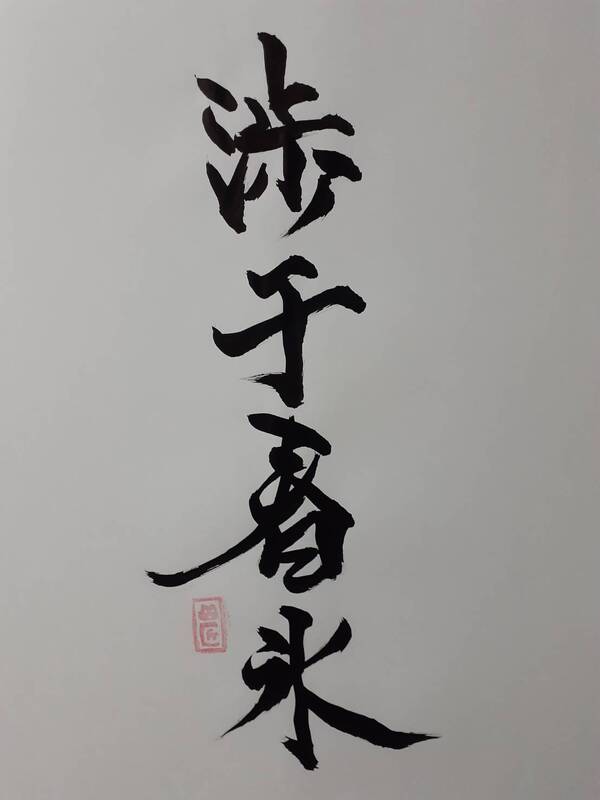 渉于春氷